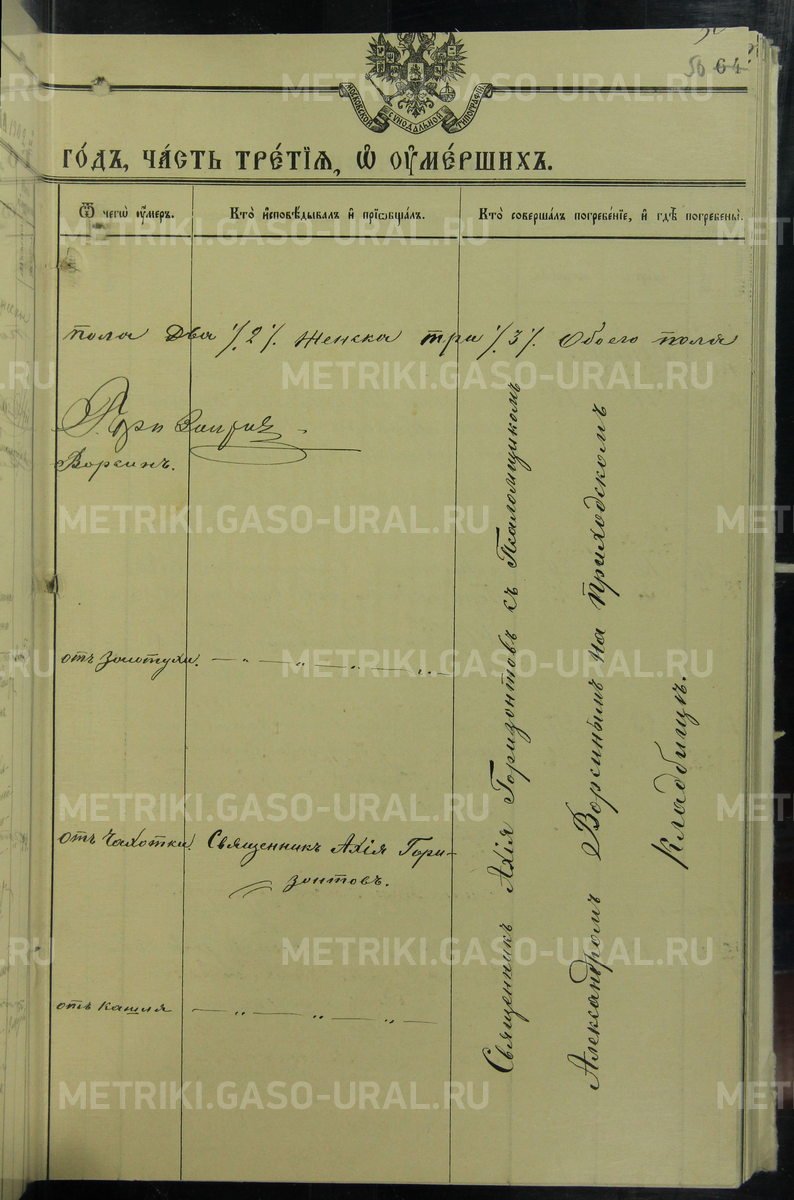 56 64
МОСКОВСКОЙ СѴНОДАЛЬНОЙ ТИПОГРАФІИ
го́дъ, ча́сть тре́тїѧ, ѡ҆ ᲂу҆ме́ршихъ.
Ѿ чегѡ̀ ᲂу҆́меръ.
Кто̀ и҆сповѣ́дывалъ и҆ прїѡбща́лъ.
Кто̀ соверша́лъ погребе́нїе, и҆ гдѣ̀ погребены̀.
пола два /2/. Женска три /3/. Обоего пола
Ворсинъ.
отъ Золотухи.
отъ Чахотки.
Священникъ Ахія Гори-
зонтовъ.
отъ кашля
Священникъ Ахія Горизонтовъ съ Псаломщикомъ
Александромъ Ворсинымъ на приходскомъ
кладбищѣ.
METRIKI.GASO-URAL.RU